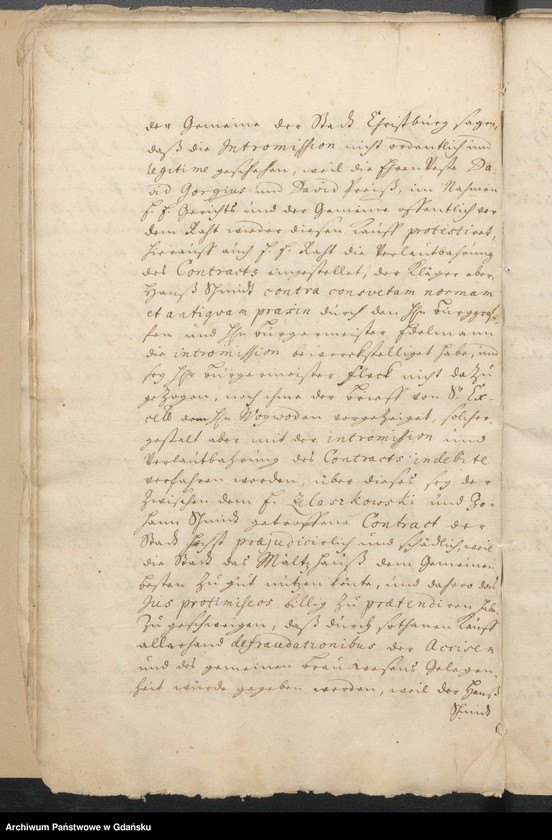 der Gemeine der Stadt Christburg sagen,
daß die Intromission nicht ordentlich und
legitime geschehen, weil die EhrenVeste Da-
vid Gorgius und David Preuß, im Nahmen
E. E. Gerichts und der Gemeine offentlich vor
dem Raht wieder diesen Kauff protestiret,
hierauff auch E. E. Raht die Verlautbahrung
des Contracts eingestellet, der Kläger aber
Hanß Schmidt contra consvetam normam
et antiqvam praxin durch den Hn Burggraf-
fen und Hn Bürgermeister Edelmann
die intromission bewerckstelliget habe, und
sey Hr Bürgermeister Fleck nicht dazu
gezogen, noch ihme der Brieff von Sr Ex-
cell dem Hn Woywoden vorgezeiget, solcher
gestalt aber mit der intromission und
Verlautbahrung des Contracts indebite
verfahren worden, über dieses sey der
Zwischen dem H. Elaszkowski und Jo-
hann Schmidt getroffene Contract der
Stadt höchst præjudicirlich und schädlich, weil
die Stadt das Maltzhauß dem Gemeinen
besten zu gut nutzen könte, und dahero das
Jus protimiseos billig zu prætendiren habe,
Zu geschweigen, daß durch sothanen Kauff
allerhand defraudationibus der Accisen
und des gemeinen Brauwesens Gelegen-
heit würde gegeben werden, weil der Hanß
Schmidt
Archiwum Państwowe w Gdańsku